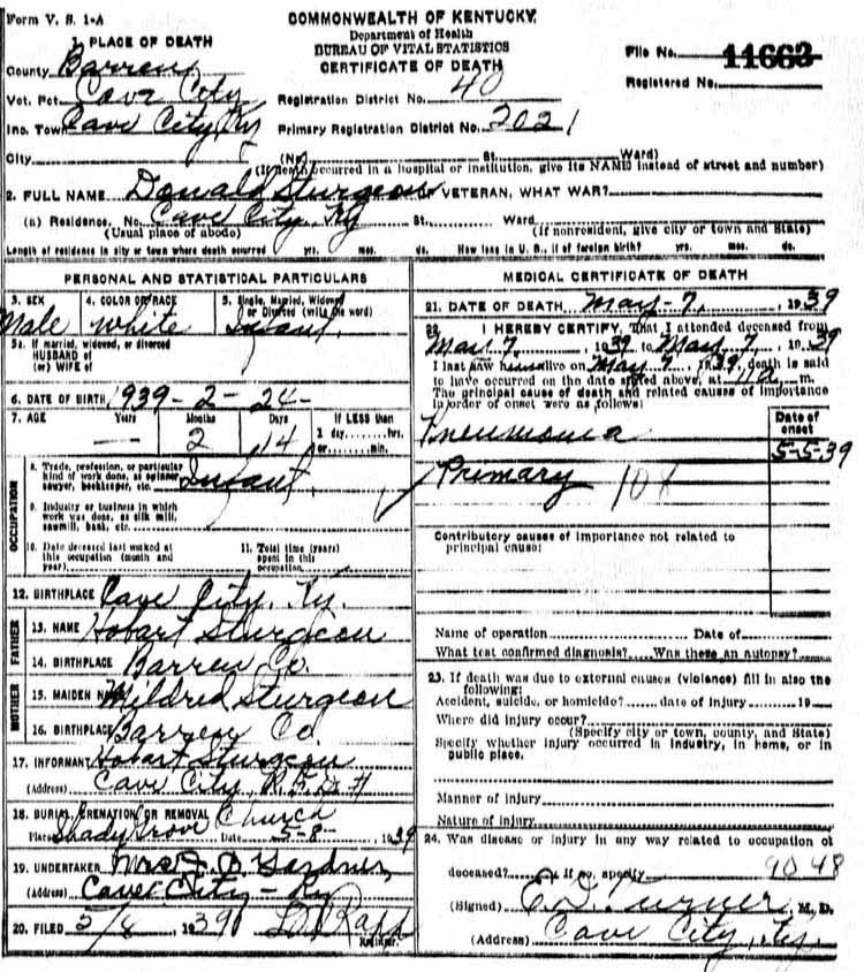 Form V. S. 1-A
COMMONWEALTH OF KENTUCKY
Department of Health
BUREAU OF VITAL STATISTICS
CERTIFICATE OF DEATH
File No. 11663
Registered No.
1. PLACE OF DEATH
County Barren
Vot. Pct. Cave City
Registration District No. 40
Inc. Town Cave City, Ky
Primary Registration District No. 2021
City (No. St. Ward)
(If death occurred in a hospital or institution, give its NAME instead of street and number)
2. FULL NAME Donald Sturgeon IF VETERAN, WHAT WAR?
(a) Residence. No. Cave City, Ky St. Ward
(Usual place of abode) (If nonresident, give city or town and State)
Length of residence in city or town where death occurred yrs. mos. ds. How long in U. S., if of foreign birth? yrs. mos. ds.
PERSONAL AND STATISTICAL PARTICULARS
3. SEX Male
4. COLOR OR RACE White
5. Single, Married, Widowed or Divorced (write the word) Infant
5a. If married, widowed, or divorced
HUSBAND of
(or) WIFE of
6. DATE OF BIRTH 1939-2-24-
7. AGE Years Months Days If LESS than
— 2 14 1 day hrs.
or min.
OCCUPATION
8. Trade, profession, or particular
kind of work done, as spinner,
sawyer, bookkeeper, etc. Infant
9. Industry or business in which
work was done, as silk mill,
sawmill, bank, etc.
10. Date deceased last worked at
this occupation (month and
year)
11. Total time (years)
spent in this
occupation
12. BIRTHPLACE Cave City, Ky.
FATHER
13. NAME Hobart Sturgeon
14. BIRTHPLACE Barren Co.
MOTHER
15. MAIDEN NAME Mildred Sturgeon
16. BIRTHPLACE Barren Co
17. INFORMANT Hobart Sturgeon
(Address) Cave City, R.F.D.
18. BURIAL CREMATION OR REMOVAL Church
Place Shady Grove Date 5-8- 1939
19. UNDERTAKER Mrs J. D. Gardner
(Address) Cave City - Ky
20. FILED 5/8 1939 Rapp
Registrar.
MEDICAL CERTIFICATE OF DEATH
21. DATE OF DEATH May - 7, , 1939
22. I HEREBY CERTIFY, That I attended deceased from
May 7, 1939 to May 7, 1939
I last saw him alive on May 7, 1939, death is said
to have occurred on the date stated above, at 11a m.
The principal cause of death and related causes of importance
in order of onset were as follows:
Date of onset
Pneumonia 5-5-39
Primary 108
Contributory causes of importance not related to
principal cause:
Name of operation Date of
What test confirmed diagnosis? Was there an autopsy?
23. If death was due to external causes (violence) fill in also the
following:
Accident, suicide, or homicide? date of injury 19
Where did injury occur?
(Specify city or town, county, and State)
Specify whether injury occurred in industry, in home, or in
public place.
Manner of injury
Nature of injury
24. Was disease or injury in any way related to occupation of
deceased? If so, specify 9048
(Signed) C. D. Turner, M. D.
(Address) Cave City, Ky.